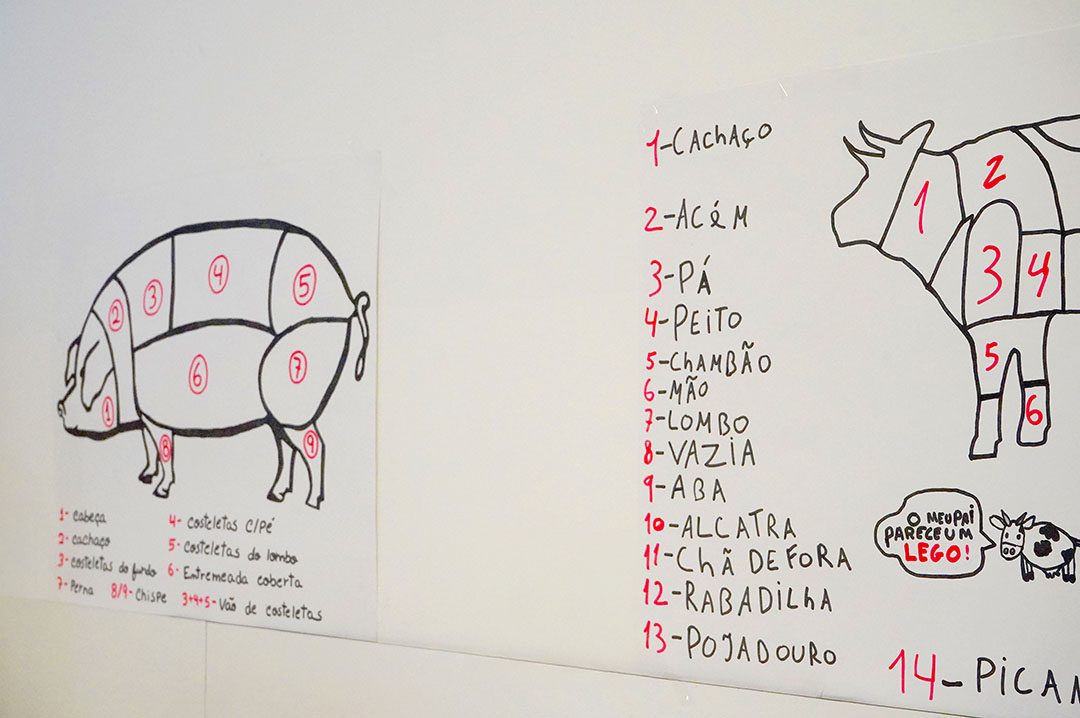 2
3
4
5
6
7
1
8
9
1- Cabeça
2- cachaço
3- costeletas do fundo
7- Perna
8/9- Chispe
4- Costeletas C/Pé
5- Costeletas do lombo
6- Entremeada coberta
3+4+5- Vão de costeletas
1-CACHAÇO
2-ACÉM
3-PÁ
4-PEITO
5-CHAMBÃO
6-MÃO
7-LOMBO
8-VAZIA
9-ABA
10-ALCATRA
11-CHÃ DE FORA
12-RABADILHA
13-POJADOURO
14-PICAN
1
2
3
4
5
6
O MEU PAI
PARECE UM
LEGO!